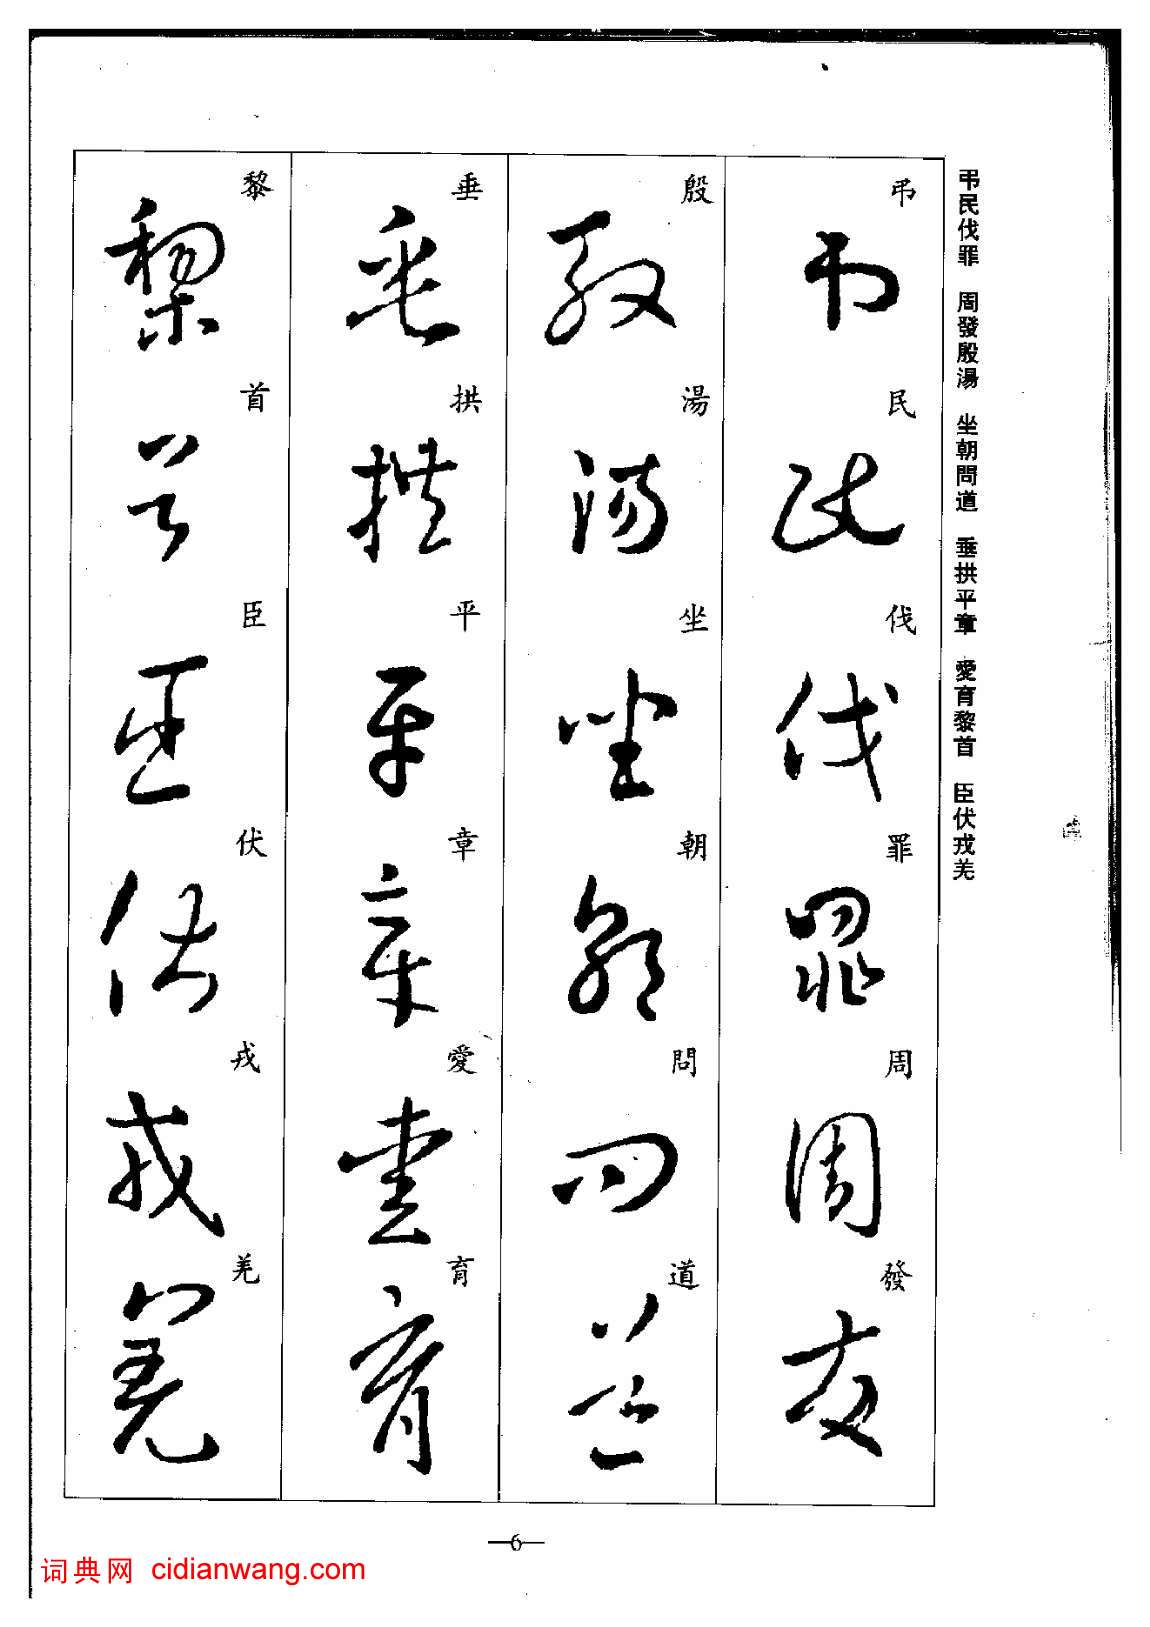 弔民伐罪　周發殷湯　坐朝問道　垂拱平章　愛育黎首　臣伏戎羌
弔民伐罪周發
殷湯坐朝問道
垂拱平章愛育
黎首臣伏戎羌
—6—
词典网 cidianwang.com